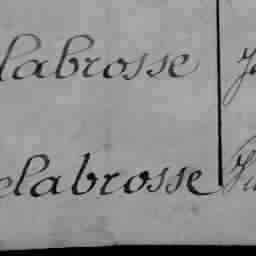 labrosse
elabrosse